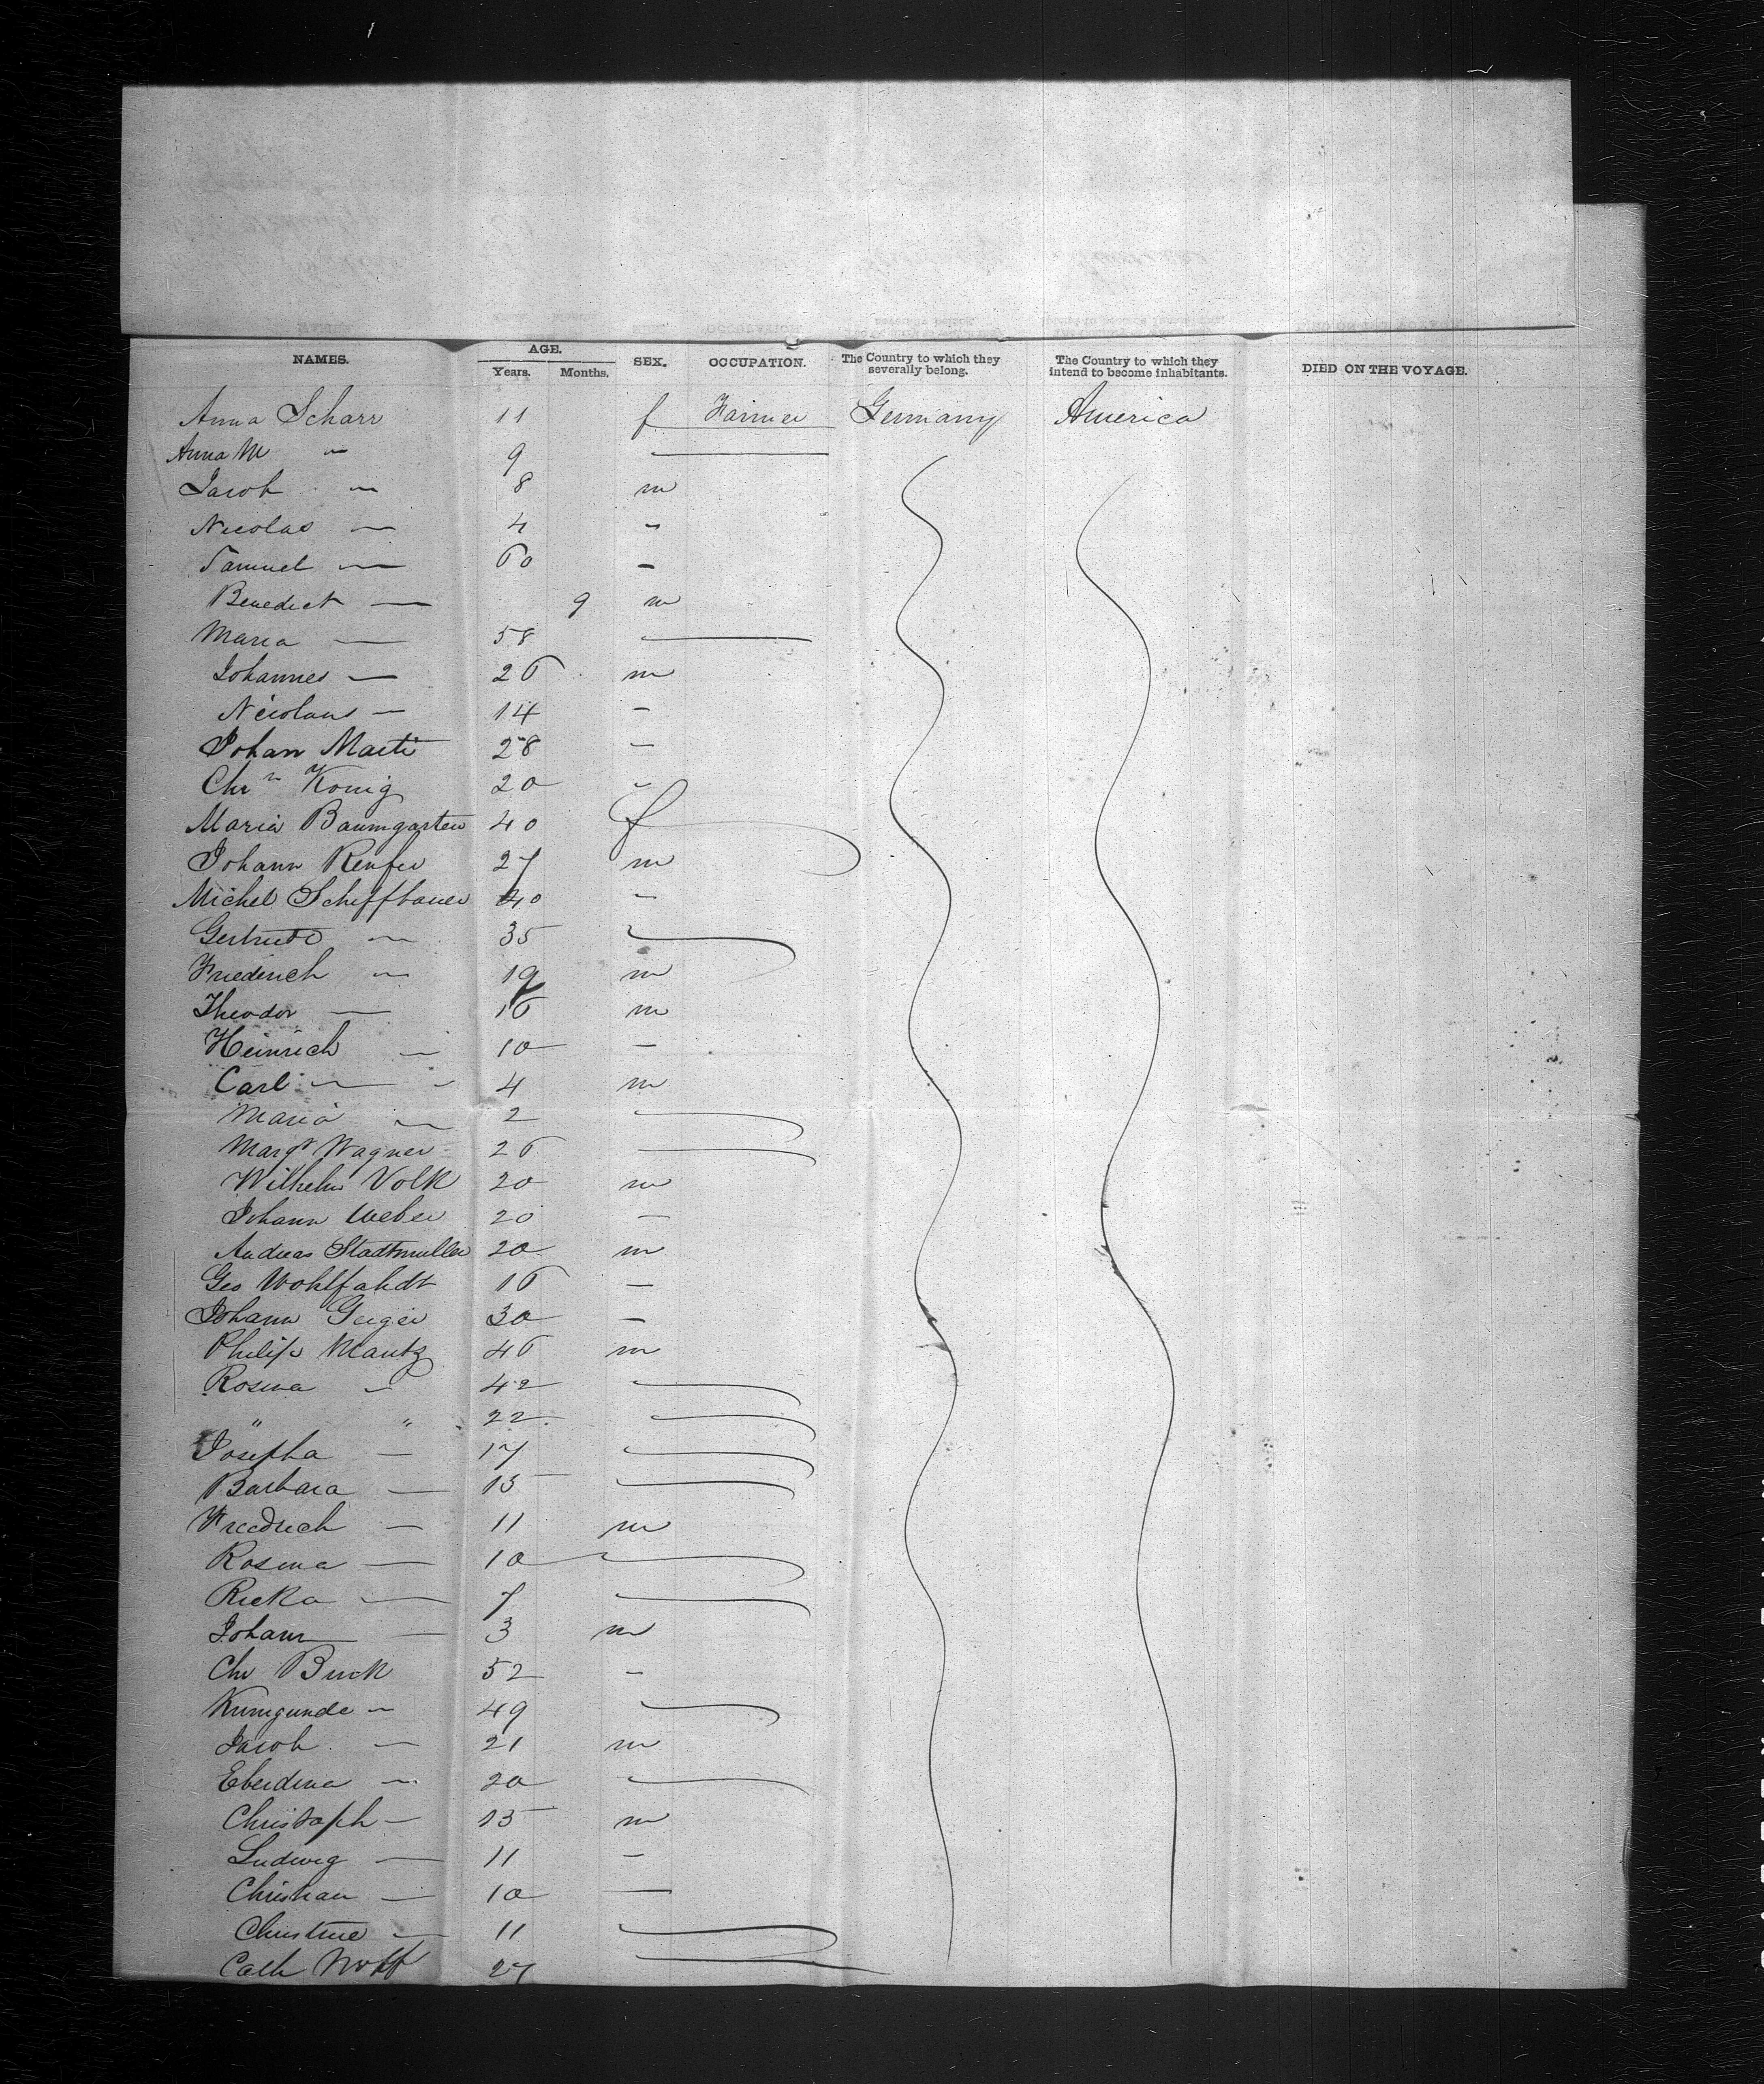 NAMES. AGE. Years. Months. SEX. OCCUPATION. The Country to which they severally belong. The Country to which they intend to become inhabitants. DIED ON THE VOYAGE.
Anna Scharr 11 f Farmer Germany America
Anna M " 9
Jacob " 8 m
Nicolas — 4 "
Samuel — 60 –
Benedict — 9 m
Maria — 58
Johannes — 26 m
Nicolaus — 14 –
Johan Marti 28 –
Chrn Konig 20 "
Maria Baumgarten 40 f
Johann Renfer 27 m
Michel Schiffbauer 40 –
Gertrude " 35
Friederich " 19 m
Theodor — 16 m
Heinrich — 10 –
Carl — 4 m
Maria " 2
Margt Wagner 26
Wilhelm Volk 20 m
Johann Weber 20 –
Andreas Stadtmuller 20 m
Geo Wohlfahdt 16 –
Johann Geiger 30 –
Philip Mautz 46 m
Rosina " 42
" " 22
Josepha — 17
Barbara — 15
Friedrich — 11 m
Rosina — 10
Ricka — 7
Johann — 3 m
Chr Buck 52 –
Kunigunde — 49
Jacob — 21 m
Eberdina — 20
Christoph — 15 m
Ludwig — 11 –
Christian — 10 —
Christine — 11
Cath 27